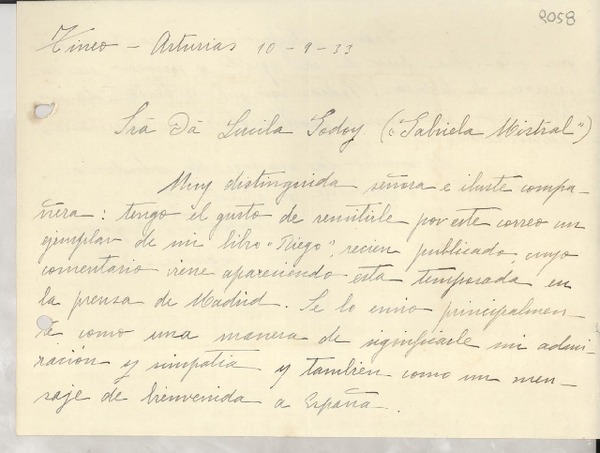 2058
Tineo - Asturias 10-9-33
Sra Dª Lucila Godoy ("Gabriela Mistral")
Muy distinguida señora e ilustre compa-
ñera: tengo el gusto de remitirle por este correo un
ejemplar de mi libro "Riego", recien publicado, cuyo
comentario viene apareciendo esta temporada en
la prensa de Madrid. Se lo envio principalmen-
te como una manera de significarle mi admi-
racion y simpatia y tambien como un men-
saje de bienvenida a España.